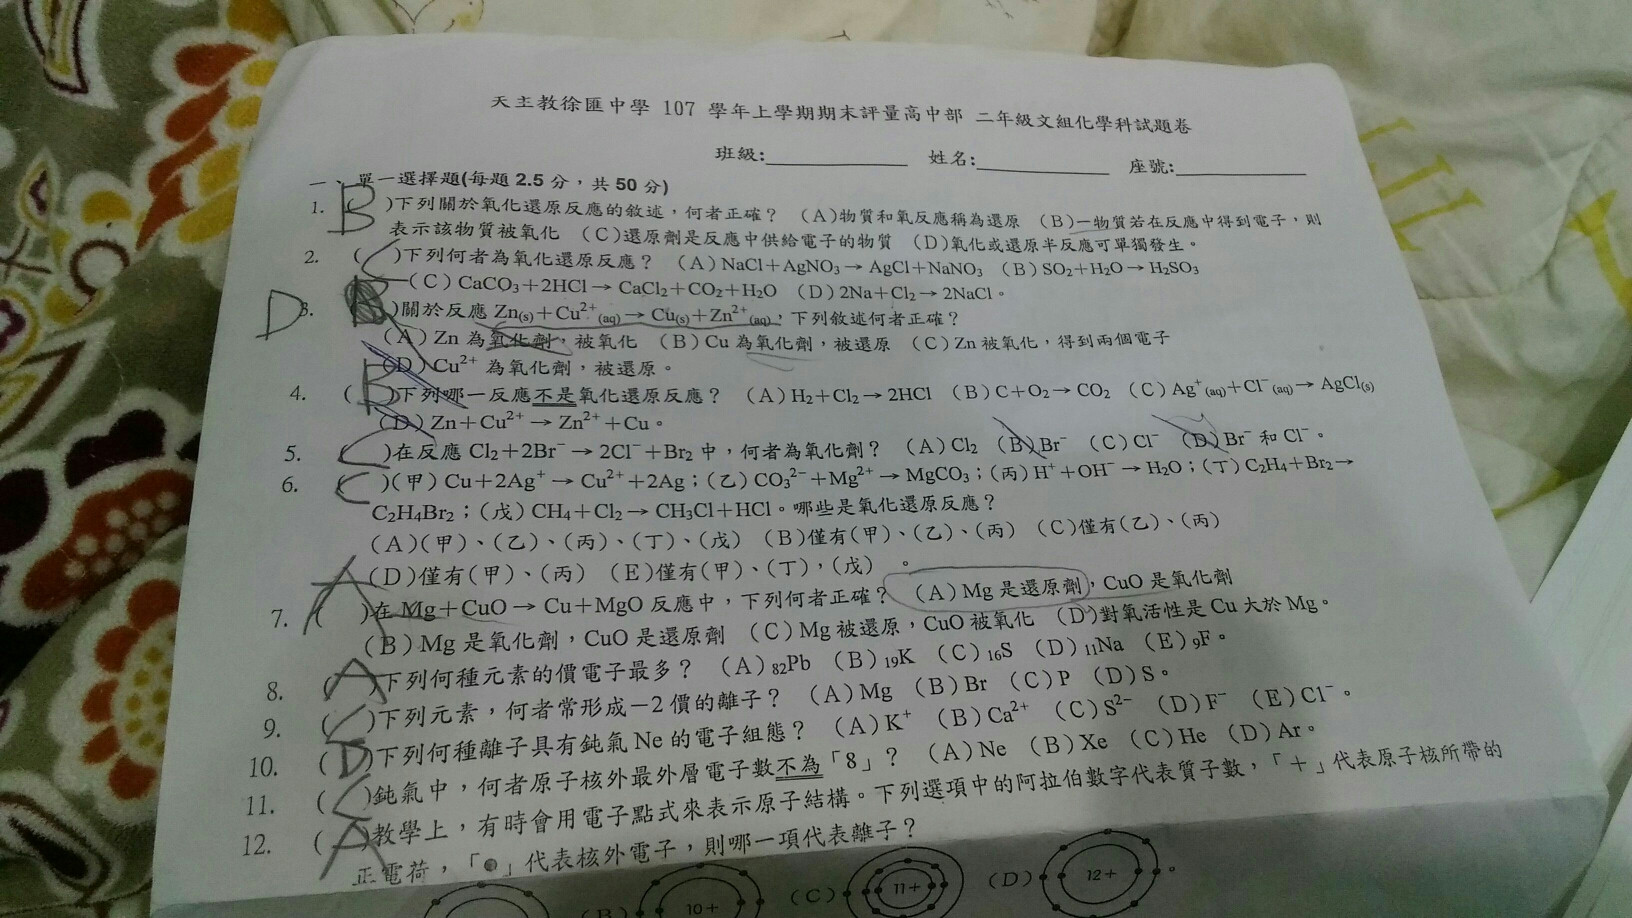 天主教徐匯中學 107 學年上學期期末評量高中部 二年級文組化學科試題卷
班級:__________ 姓名:__________ 座號:__________
一、單一選擇題(每題 2.5 分，共 50 分)
1. B )下列關於氧化還原反應的敘述，何者正確？ (A)物質和氧反應稱為還原 (B)一物質若在反應中得到電子，則
表示該物質被氧化 (C)還原劑是反應中供給電子的物質 (D)氧化或還原半反應可單獨發生。
2. ( C )下列何者為氧化還原反應？ (A) NaCl＋AgNO₃→ AgCl＋NaNO₃ (B) SO₂＋H₂O→ H₂SO₃
(C) CaCO₃＋2HCl→ CaCl₂＋CO₂＋H₂O (D) 2Na＋Cl₂→ 2NaCl。
D 3. B )關於反應 Zn(s)＋Cu²⁺(aq)→ Cu(s)＋Zn²⁺(aq)，下列敘述何者正確？
(A) Zn 為氧化劑，被氧化 (B) Cu 為氧化劑，被還原 (C) Zn 被氧化，得到兩個電子
(D) Cu²⁺ 為氧化劑，被還原。
4. ( B )下列哪一反應不是氧化還原反應？ (A) H₂＋Cl₂→ 2HCl (B) C＋O₂→ CO₂ (C) Ag⁺(aq)＋Cl⁻(aq)→ AgCl(s)
(D) Zn＋Cu²⁺ → Zn²⁺＋Cu。
5. ( C )在反應 Cl₂＋2Br⁻ → 2Cl⁻＋Br₂ 中，何者為氧化劑？ (A) Cl₂ (B) Br⁻ (C) Cl⁻ (D) Br⁻ 和 Cl⁻。
6. ( C )(甲) Cu＋2Ag⁺ → Cu²⁺＋2Ag；(乙) CO₃²⁻＋Mg²⁺ → MgCO₃；(丙) H⁺＋OH⁻ → H₂O；(丁) C₂H₄＋Br₂→
C₂H₄Br₂；(戊) CH₄＋Cl₂→ CH₃Cl＋HCl。哪些是氧化還原反應？
(A)(甲)、(乙)、(丙)、(丁)、(戊) (B)僅有(甲)、(乙)、(丙) (C)僅有(乙)、(丙)
(D)僅有(甲)、(丙) (E)僅有(甲)、(丁)，(戊) 。
7. ( A )在 Mg＋CuO→ Cu＋MgO 反應中，下列何者正確？ (A) Mg 是還原劑，CuO 是氧化劑
(B) Mg 是氧化劑，CuO 是還原劑 (C) Mg 被還原，CuO 被氧化 (D)對氧活性是 Cu 大於 Mg。
8. ( A )下列何種元素的價電子最多？ (A) ₈₂Pb (B) ₁₉K (C) ₁₆S (D) ₁₁Na (E) ₉F。
9. ( C )下列元素，何者常形成－2 價的離子？ (A) Mg (B) Br (C) P (D) S。
10. ( D )下列何種離子具有鈍氣 Ne 的電子組態？ (A) K⁺ (B) Ca²⁺ (C) S²⁻ (D) F⁻ (E) Cl⁻。
11. ( C )鈍氣中，何者原子核外最外層電子數不為「8」？ (A) Ne (B) Xe (C) He (D) Ar。
12. ( A )教學上，有時會用電子點式來表示原子結構。下列選項中的阿拉伯數字代表質子數，「＋」代表原子核所帶的
正電荷，「●」代表核外電子，則哪一項代表離子？
(B) 10+ (C) 11+ (D) 12+ 。